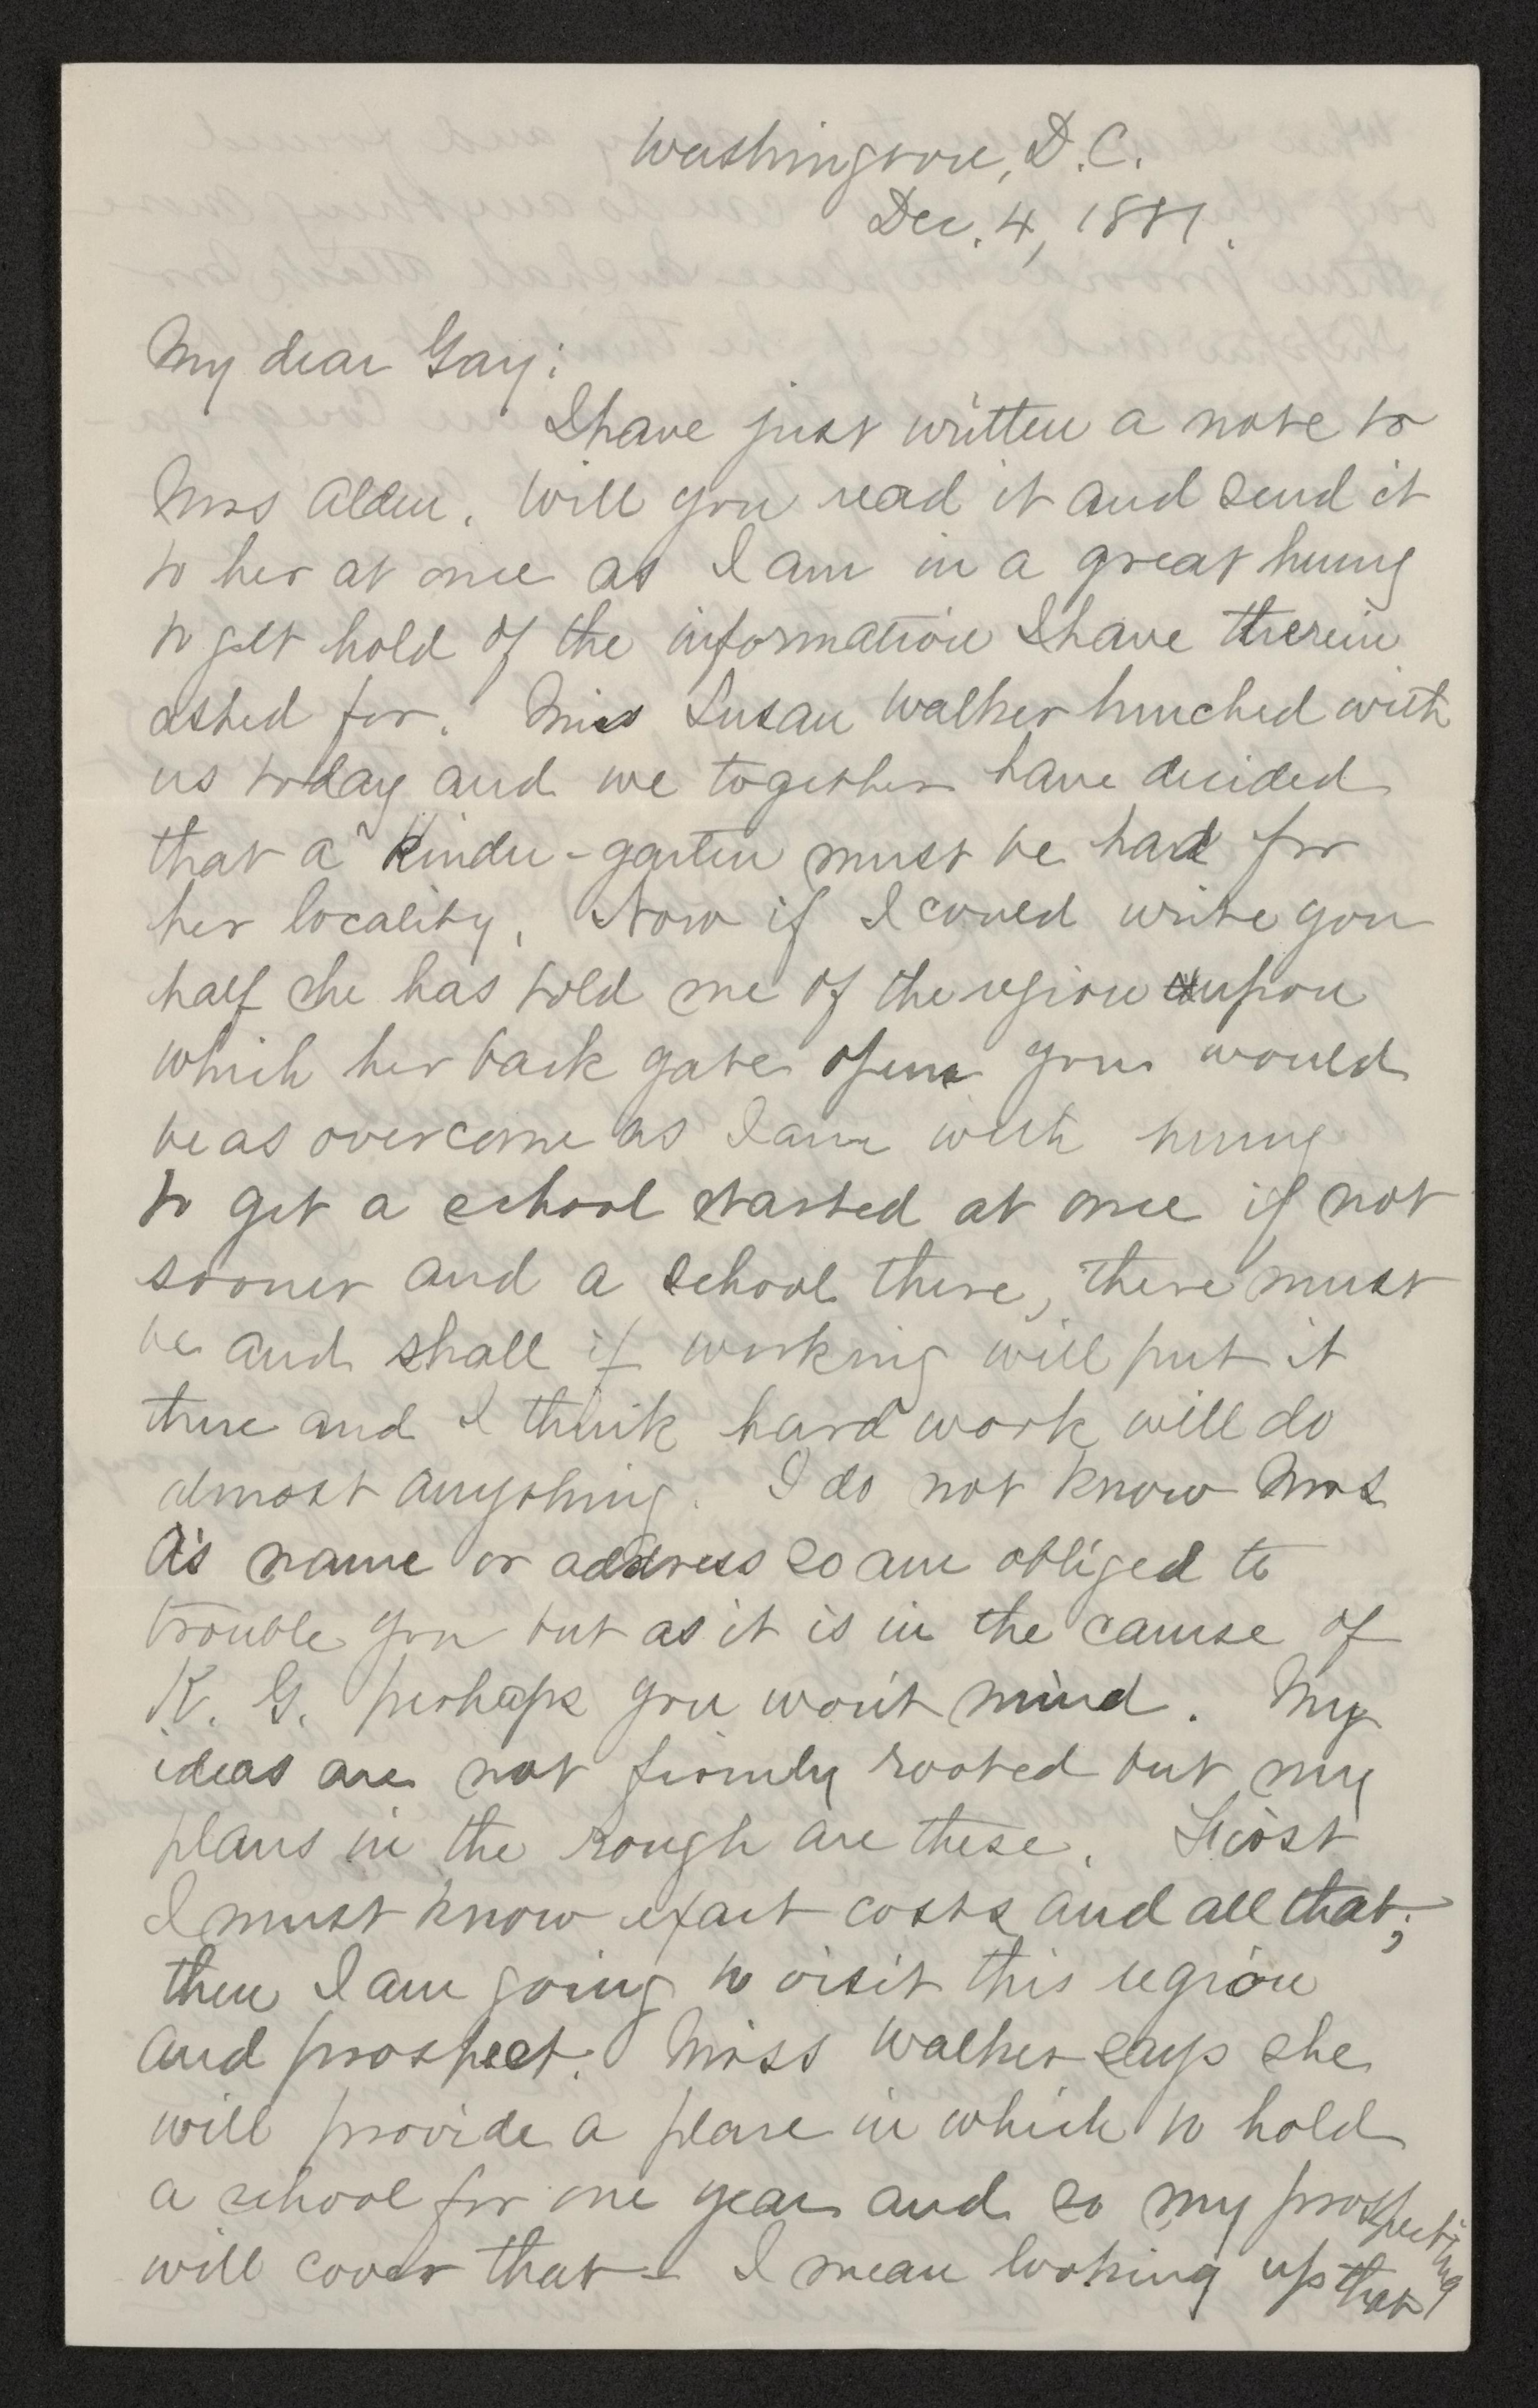 Washington, D.C.
Dec. 4, 1881.
My dear Gay:
I have just written a note to
Mrs Alden. Will you read it and send it
to her at once as I am in a great hurry
to get hold of the information I have therein
asked for. Miss Susan Walker lunched with
us today and we together have decided
that a kinder-garten must be had for
her locality. Now if I could write you
half she has told me of the region upon
which her back gate opens you would
be as overcome as I am with hurry
to get a school started at once if not
sooner and a school there, there must
be and shall if working will put it
there and I think hard work will do
almost anything. I do not know Mrs
A's name or address so am obliged to
trouble you but as it is in the cause of
K. G. perhaps you won't mind. My
ideas are not firmly rooted but my
plans in the rough are these. First
I must know exact costs and all that;
then I am going to visit this region
and prospect. Miss Walker says she
will provide a place in which to hold
a school for one year and so my prospecting
will cover that - I mean looking up that